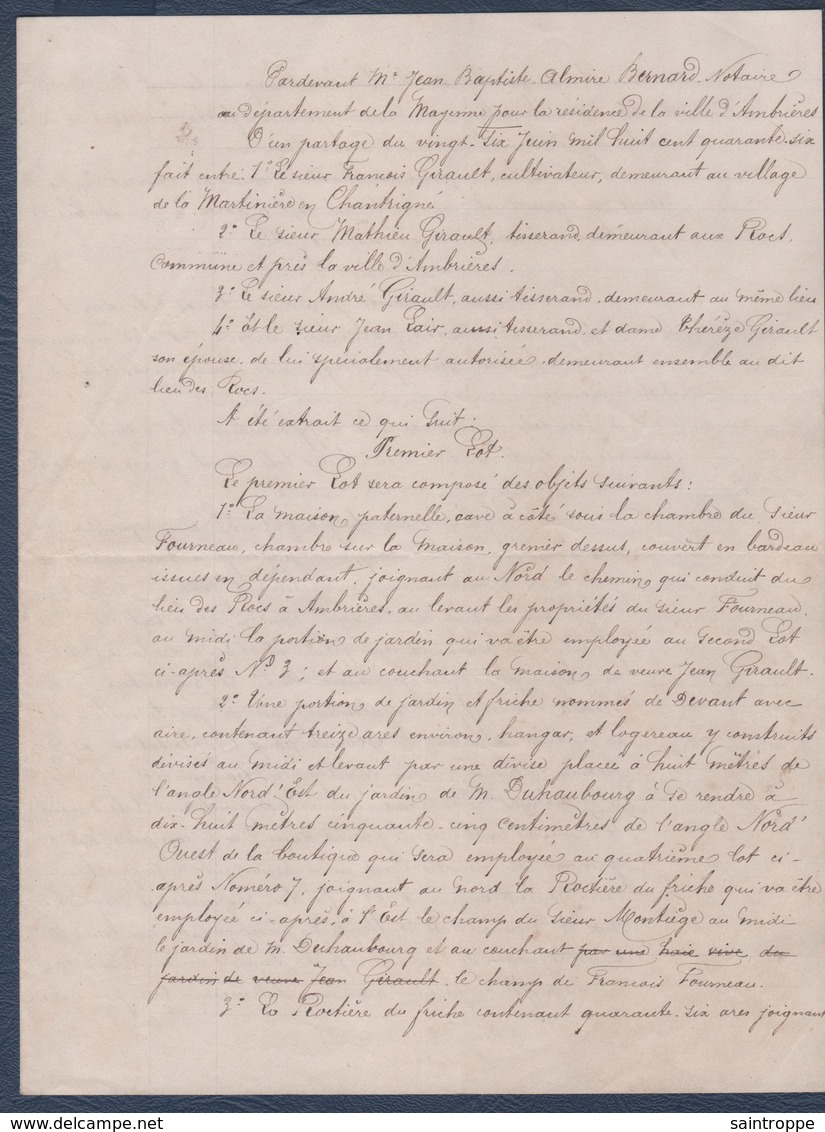 Pardevant Me Jean Baptiste Almire Bernard Notaire
au département de la Mayenne pour la résidence de la ville d'Ambrières
D'un partage du vingt-six Juin mil huit cent quarante-six
fait entre: 1° Le sieur François Girault, cultivateur, demeurant au village
de la Martinière en Chantrigné
2° Le sieur Mathieu Girault, tisserand, demeurant aux Rocs,
commune et près la ville d'Ambrières.
3° Le sieur André Girault, aussi tisserand, demeurant au même lieu
4° Et le sieur Jean Lair, aussi tisserand, et dame Thérèze Girault
son épouse, de lui spécialement autorisée, demeurant ensemble au dit
lieu des Rocs.
A été extrait ce qui suit:
Premier Lot.
Le premier Lot sera composé des objets suivants:
1° La maison paternelle, cave à côté sous la chambre du sieur
Fourneau, chambre sur la maison, grenier dessus, couvert en bardeau
issues en dépendant, joignant au Nord le chemin qui conduit du
lieu des Rocs à Ambrières, au levant les propriétés du sieur Fourneau,
au midi la portion de jardin qui va être employée au second Lot
ci-après N° 3; et au couchant la maison de veuve Jean Girault.
2° Une portion de jardin et friche nommés de Devant avec
aire, contenant treize ares environ, hangar, et logereau y construits
divisés au midi et levant par une divise placée à huit mètres de
l'angle Nord'Est du jardin de M. Duhaubourg à se rendre à
dix-huit mètres cinquante-cinq centimètres de l'angle Nord'
Ouest de la boutique qui sera employée au quatrième lot ci-
après Noméro 7, joignant au nord la Roctière du friche qui va être
employée ci-après, à l'Est le champ du sieur Montiège au midi
le jardin de M. Duhaubourg et au couchant par une haie vive du
jardin de veuve Jean Girault. le champ de François Fourneau.
3° La Roctière du friche contenant quarante-six ares joignant
saintroppe